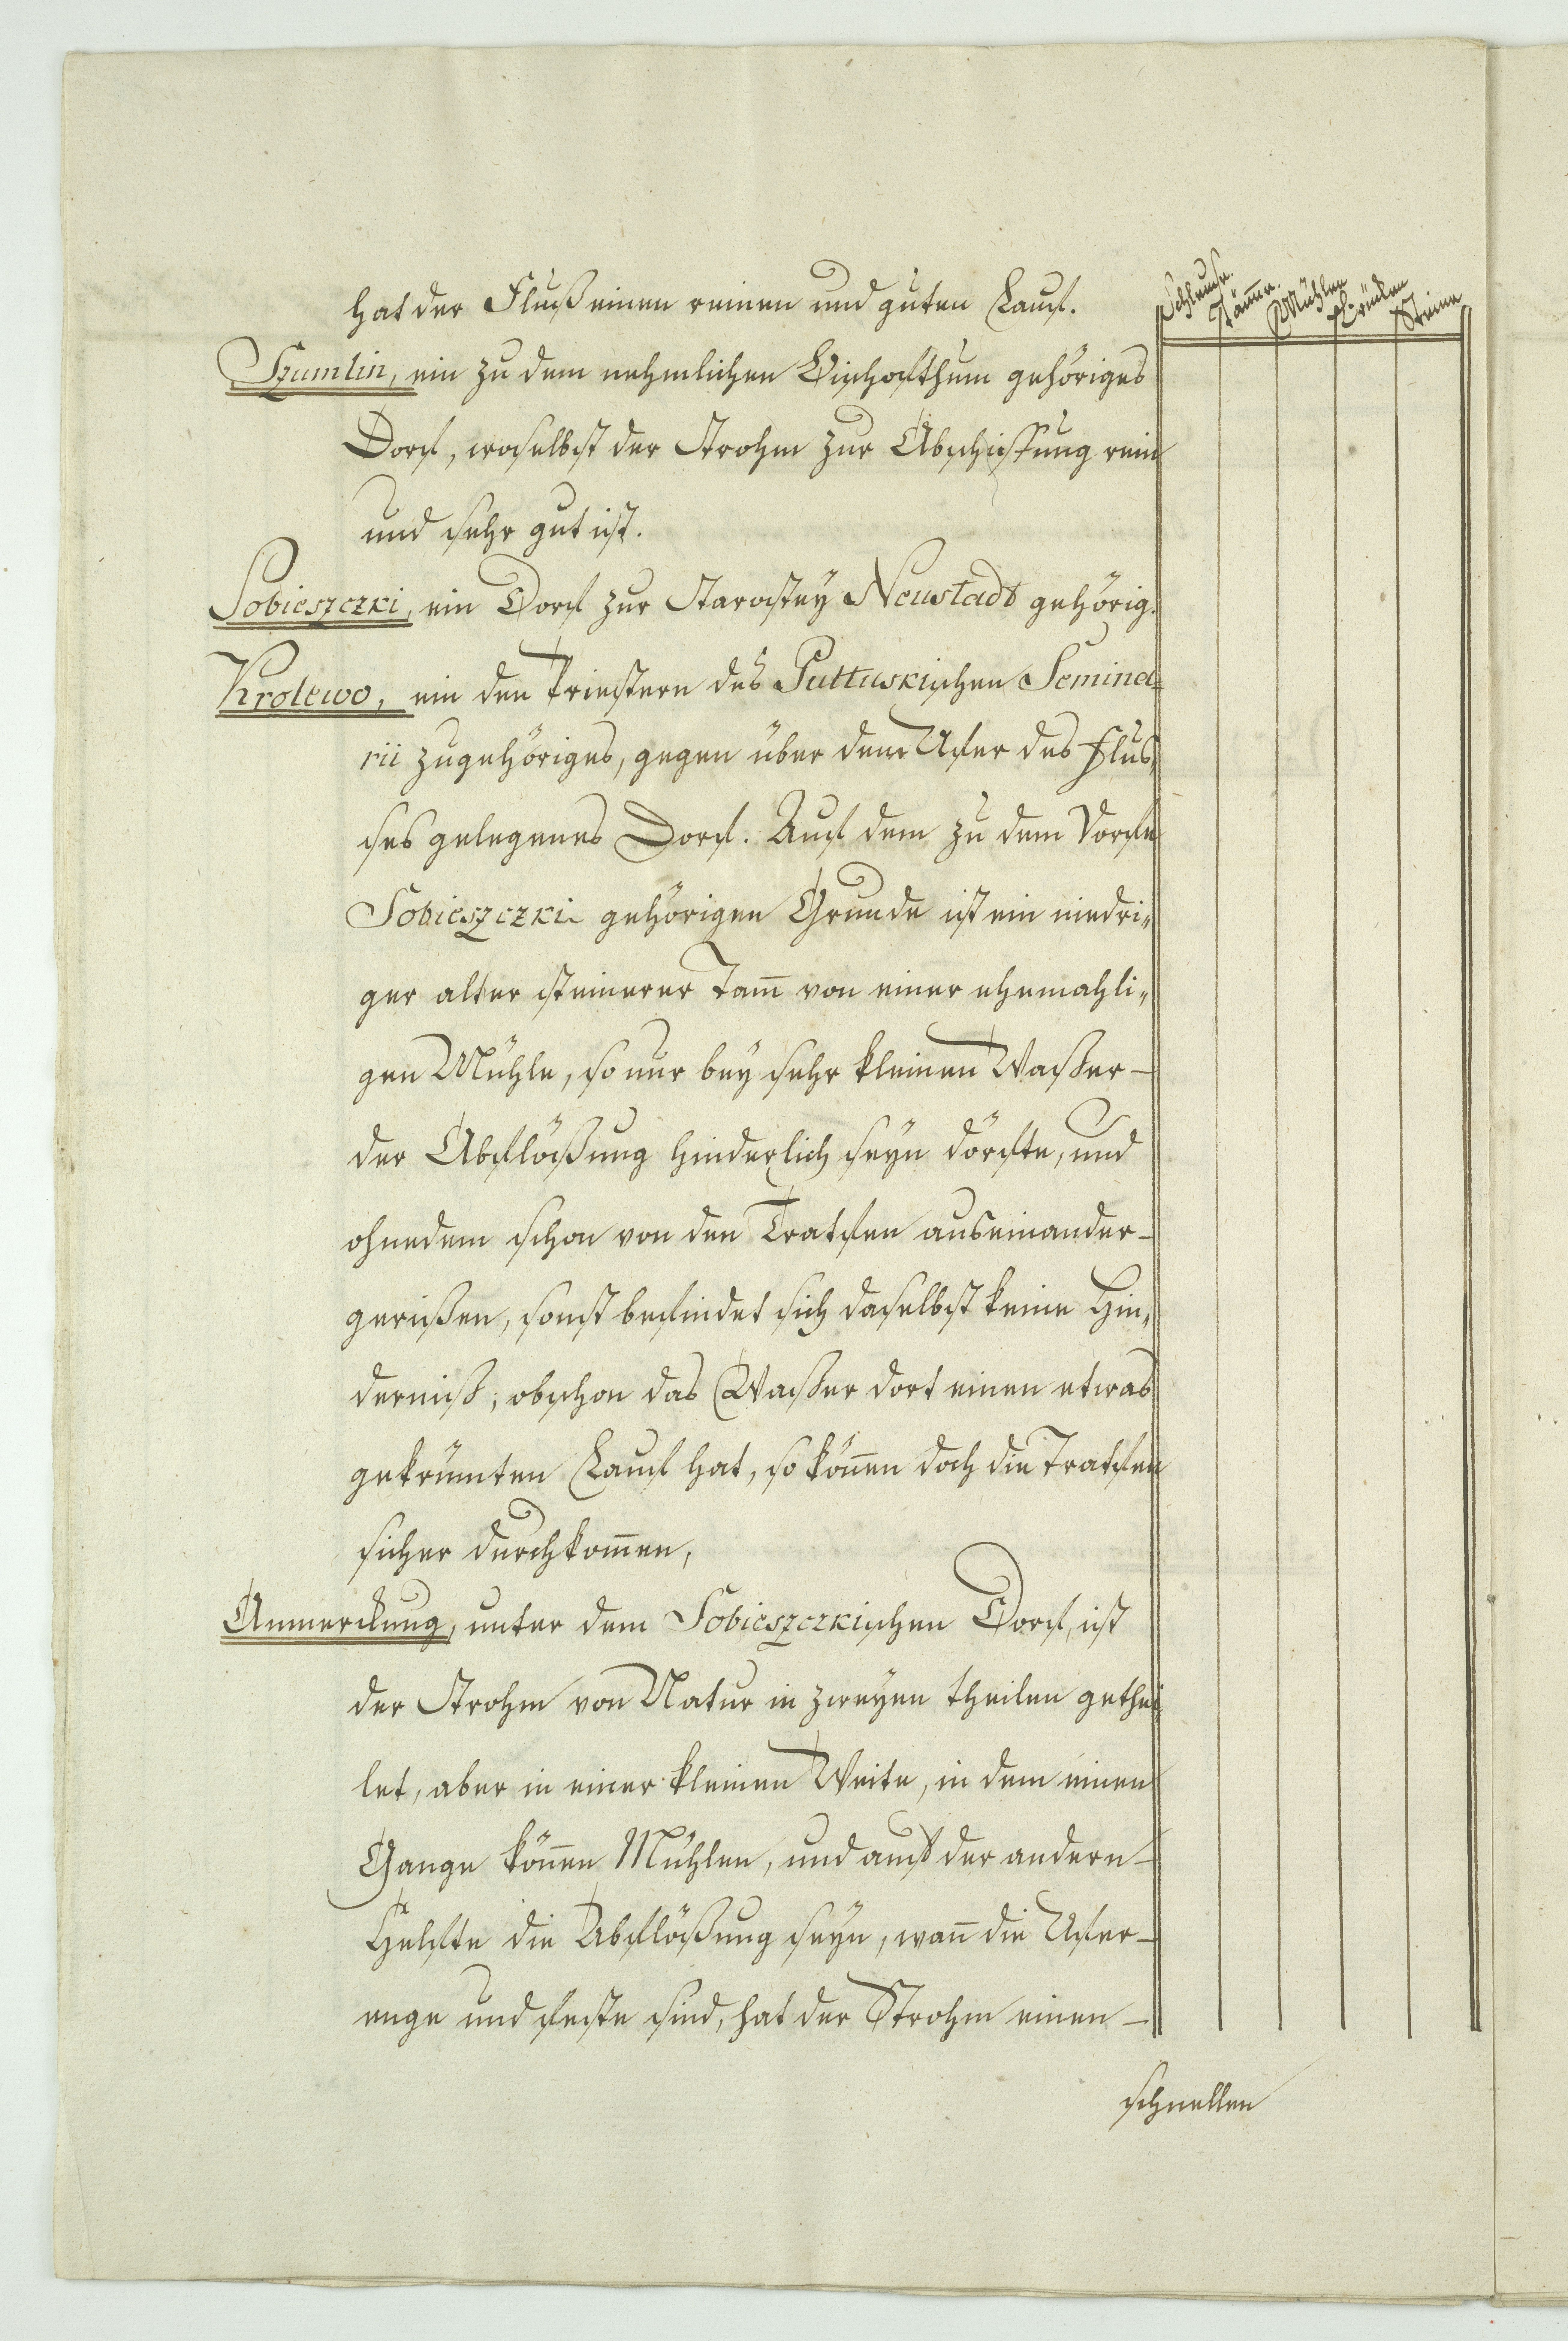 Schleuse. Tämme. Mühlen Brücken Steine
hat der Fluß einen reinen und guten Lauf.
Szumlin, ein zu dem nehmlichen Bischofthum gehöriges
Dorf, woselbst der Strohm zur Abschiffung rein
und sehr gut ist.
Sobieszczki, ein Dorf zur Starostey Neustadt gehörig.
Krolewo, ein den Priestern des Pultuskischen Semina-
rii zugehöriges, gegen über dem Ufer des Flus„
ses gelegenes Dorf. Auf dem zu dem Dorfe
Sobieszczki gehörigen Grunde ist ein niedri„
ger alter steinerer Tam̄ von einer ehemahli„
gen Mühle, so nur bey sehr kleinen Waßer-
der Abflößung hinderlich seyn dörfte, und
ohnedem schon von den Tratfen auseinander-
gerißen, sonst befindet sich daselbst keine Hin„
derniß; obschon das Waßer dort einen etwas
gekrümten Lauf hat, so kön̄en doch die Tratfen
sicher durchkom̄en,
Anmerckung, unter dem Sobieszczkischen Dorf, ist
der Strohm von Natur in zweyen theilen gethei
let, aber in einer kleinen Weite, in dem einen
Gange kön̄en Mühlen, und auf der andern-
Helfte die Abflößung seyn, wan̄ die Ufer-
enge und feste sind, hat der Strohm einen-
schnellen